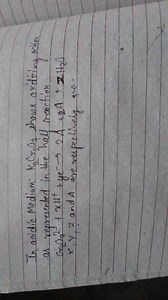 In acidic medium, K₂Cr₂O₇ shows oxidising action
as represented in the half reaction.
Cr₂O₇²⁻ + xH⁺ + ye⁻ → 2A + ZH₂O
x, Y, Z and A are respectively are.